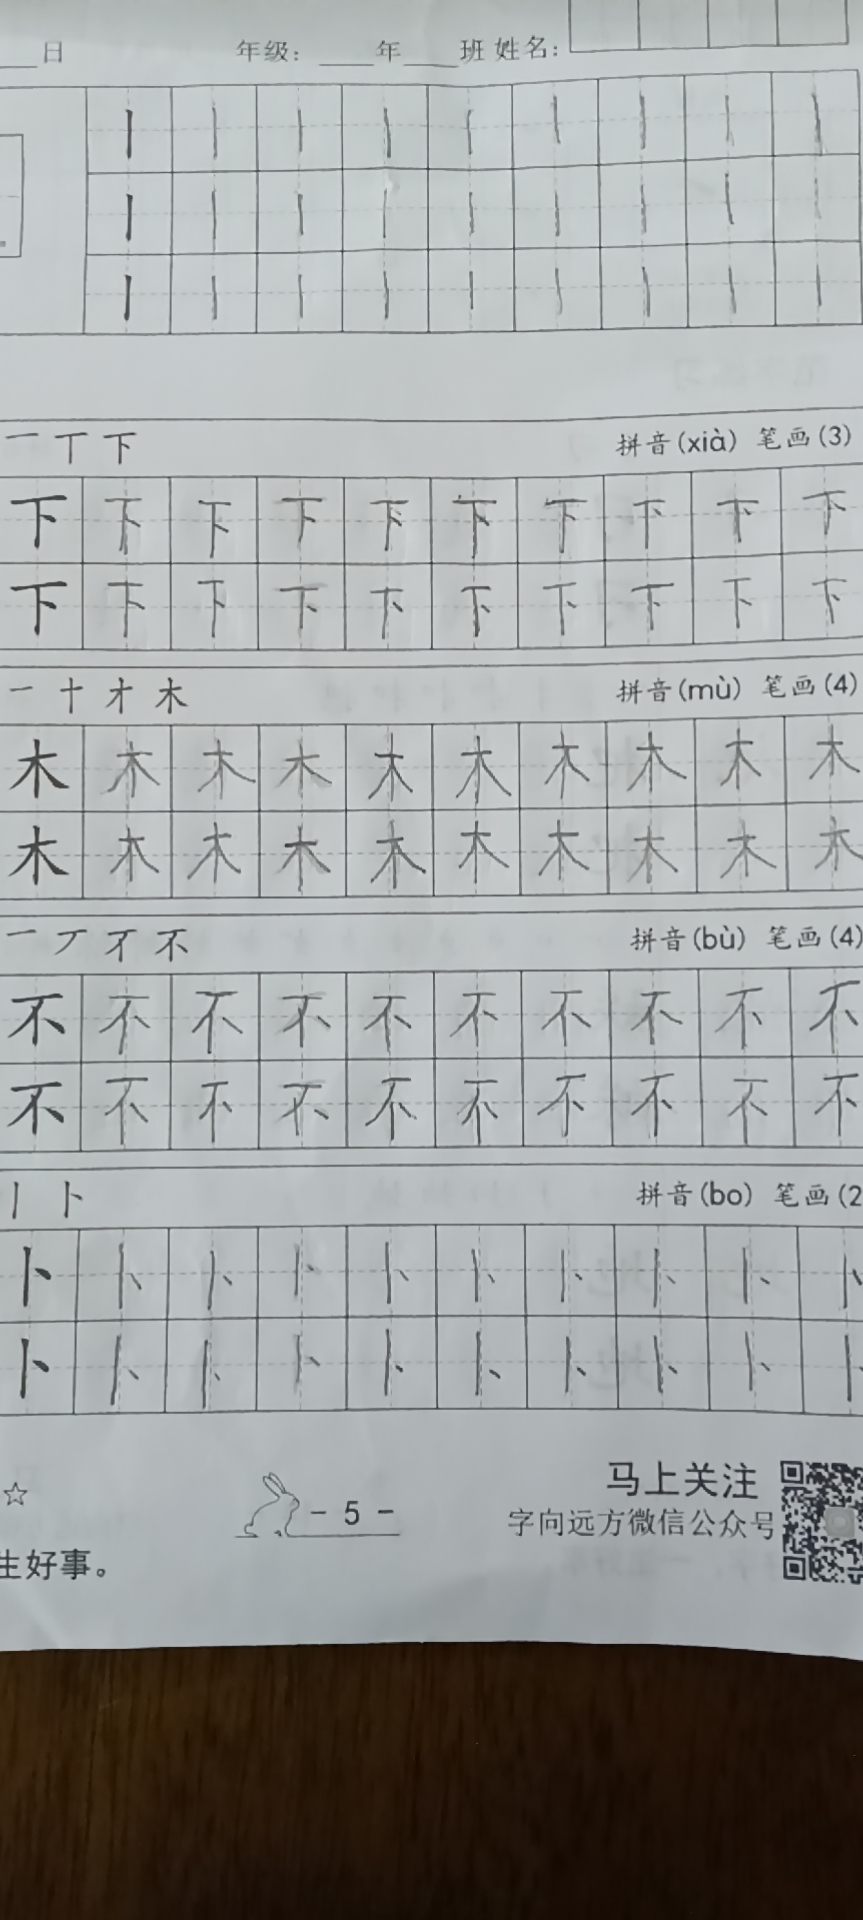 日 年级：____年____班 姓名：
丨 丨 丨 丨 丨 丨 丨 丨 丨
丨 丨 丨 丨 丨 丨 丨 丨 丨
丨 丨 丨 丨 丨 丨 丨 丨 丨
一 丅 下 拼音(xià) 笔画(3)
下 下 下 下 下 下 下 下 下 下
下 下 下 下 下 下 下 下 下 下
一 十 才 木 拼音(mù) 笔画(4)
木 木 木 木 木 木 木 木 木 木
木 木 木 木 木 木 木 木 木 木
一 丆 不 拼音(bù) 笔画(4)
不 不 不 不 不 不 不 不 不 不
不 不 不 不 不 不 不 不 不 不
丨 卜 拼音(bo) 笔画(2
卜 卜 卜 卜 卜 卜 卜 卜 卜 卜
卜 卜 卜 卜 卜 卜 卜 卜 卜 卜
☆ - 5 - 马上关注
字向远方微信公众号
生好事。